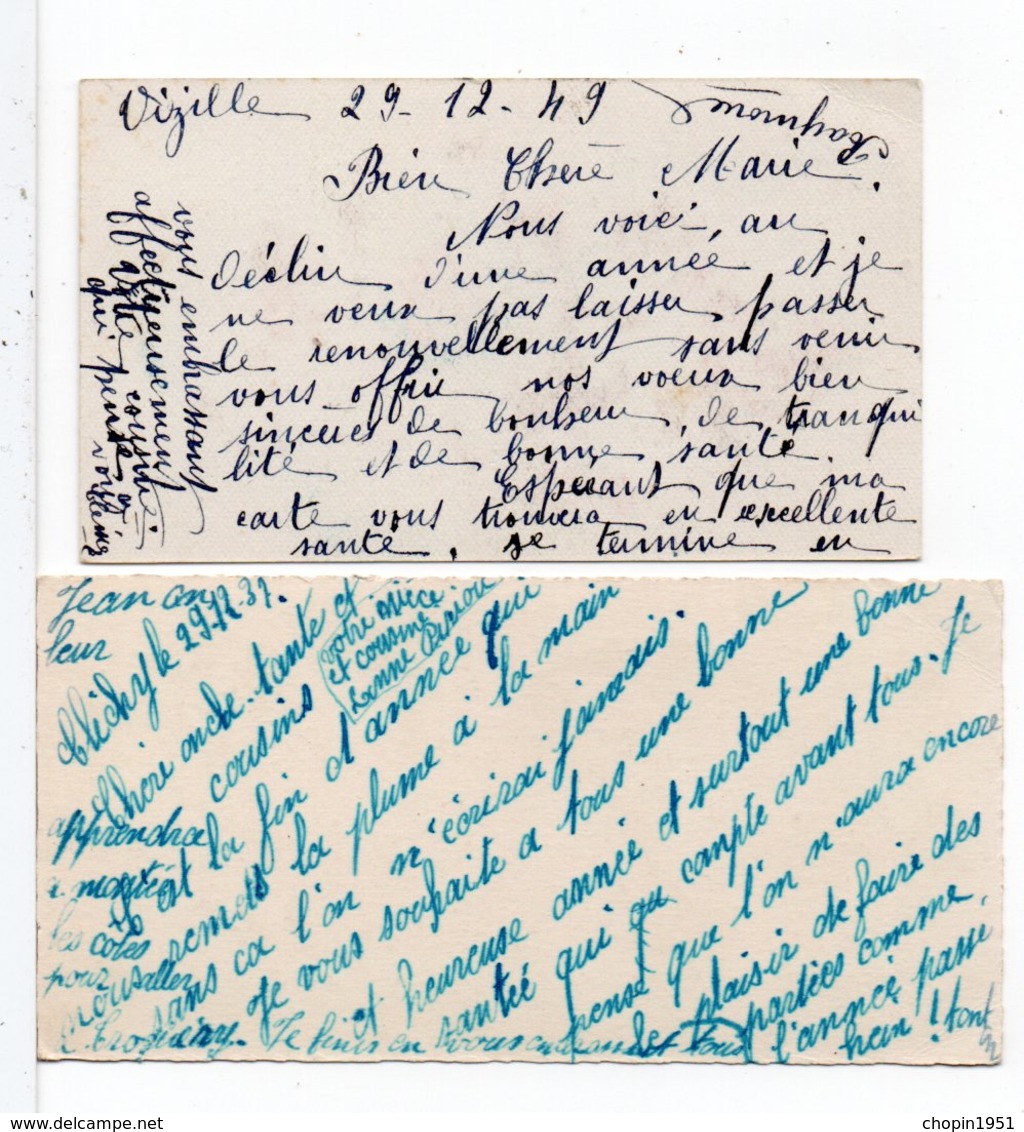 Vizille 29-12-49
Bien Chère Marie.
Nous voici, au
déclin d'une année et je
ne veux pas laisser passer
le renouvellement sans venir
vous offrir nos voeux bien
sincères de bonheur, de tranqui
lité et de bonne santé.
Espérant que ma
carte vous trouvera en excellente
santé, je termine en
vous embrassant
affectueusement
Votre cousine
qui pense à vous
Raymonde
Clichy le 29.12.37.
Chère oncle tante et
cousins
C'est la fin d'année qui
nous remets la plume à la main
sans ca l'on n'écrirai jamais.
Je vous souhaite a tous une bonne
et heureuse année et surtout une bonne
santée qui qu compte avant tous. Je
pense que l'on n'aura encore
le plaisir de faire des
parties comme
l'année passé
hein ! tont
Jean
leur
apprendra
a monter
les cotes
pour aller
Je finis en vous embrassant tous
votre nièce
et cousine